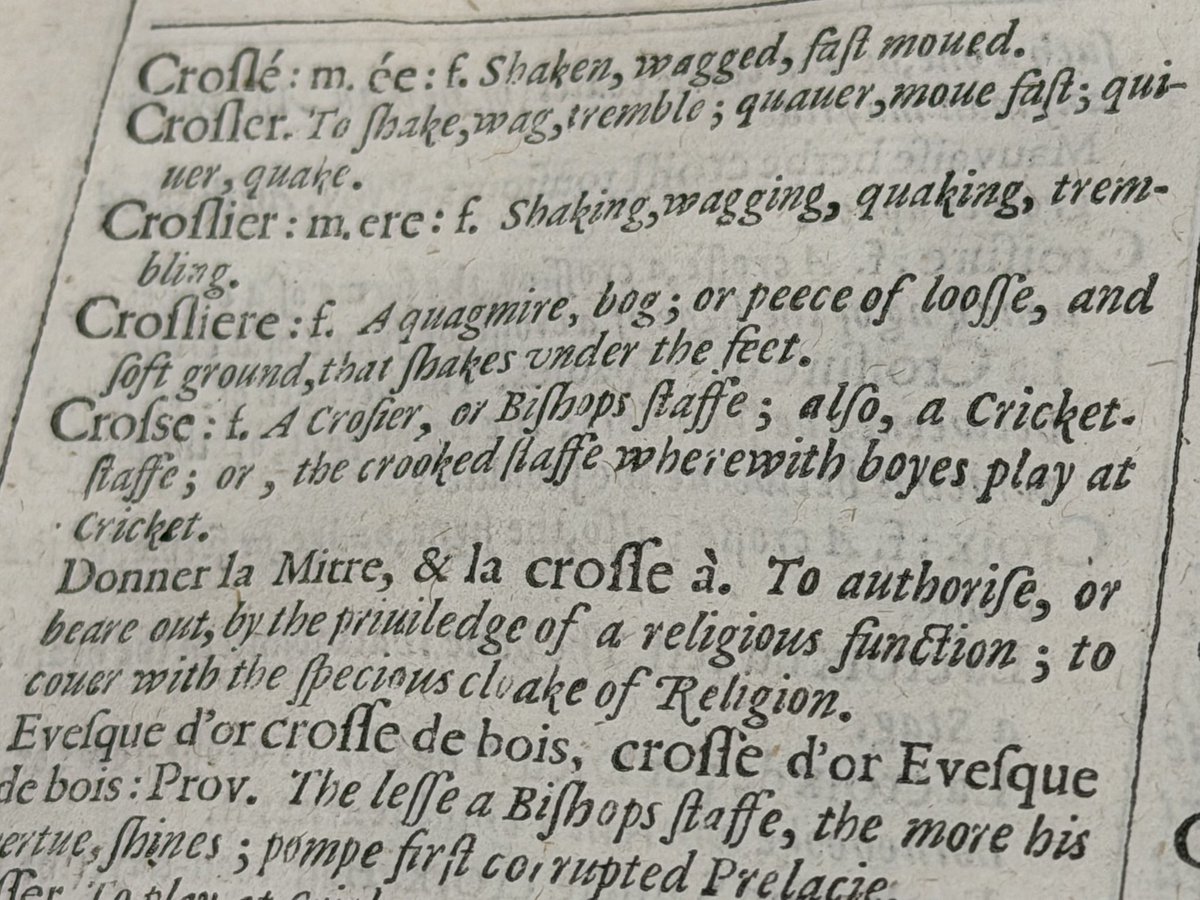 Croſlé : m. ée : f. Shaken, wagged, faſt moued.
Croſler. To ſhake, wag, tremble ; quauer, moue faſt ; qui-
uer, quake.
Croſlier : m. ere : f. Shaking, wagging, quaking, trem-
bling.
Croſliere : f. A quagmire, bog ; or peece of looſſe, and
ſoft ground, that ſhakes vnder the feet.
Croſse : f. A Croſier, or Biſhops ſtaffe ; alſo, a Cricket-
ſtaffe ; or , the crooked ſtaffe wherewith boyes play at
Cricket.
Donner la Mitre, & la croſſe à. To authoriſe, or
beare out, by the priuiledge of a religious function ; to
couer with the ſpecious cloake of Religion.
Eveſque d'or croſſe de bois, croſſe d'or Eveſque
de bois : Prov. The leſſe a Biſhops ſtaffe, the more his
vertue, ſhines ; pompe firſt corrupted Prelacie.
To play at